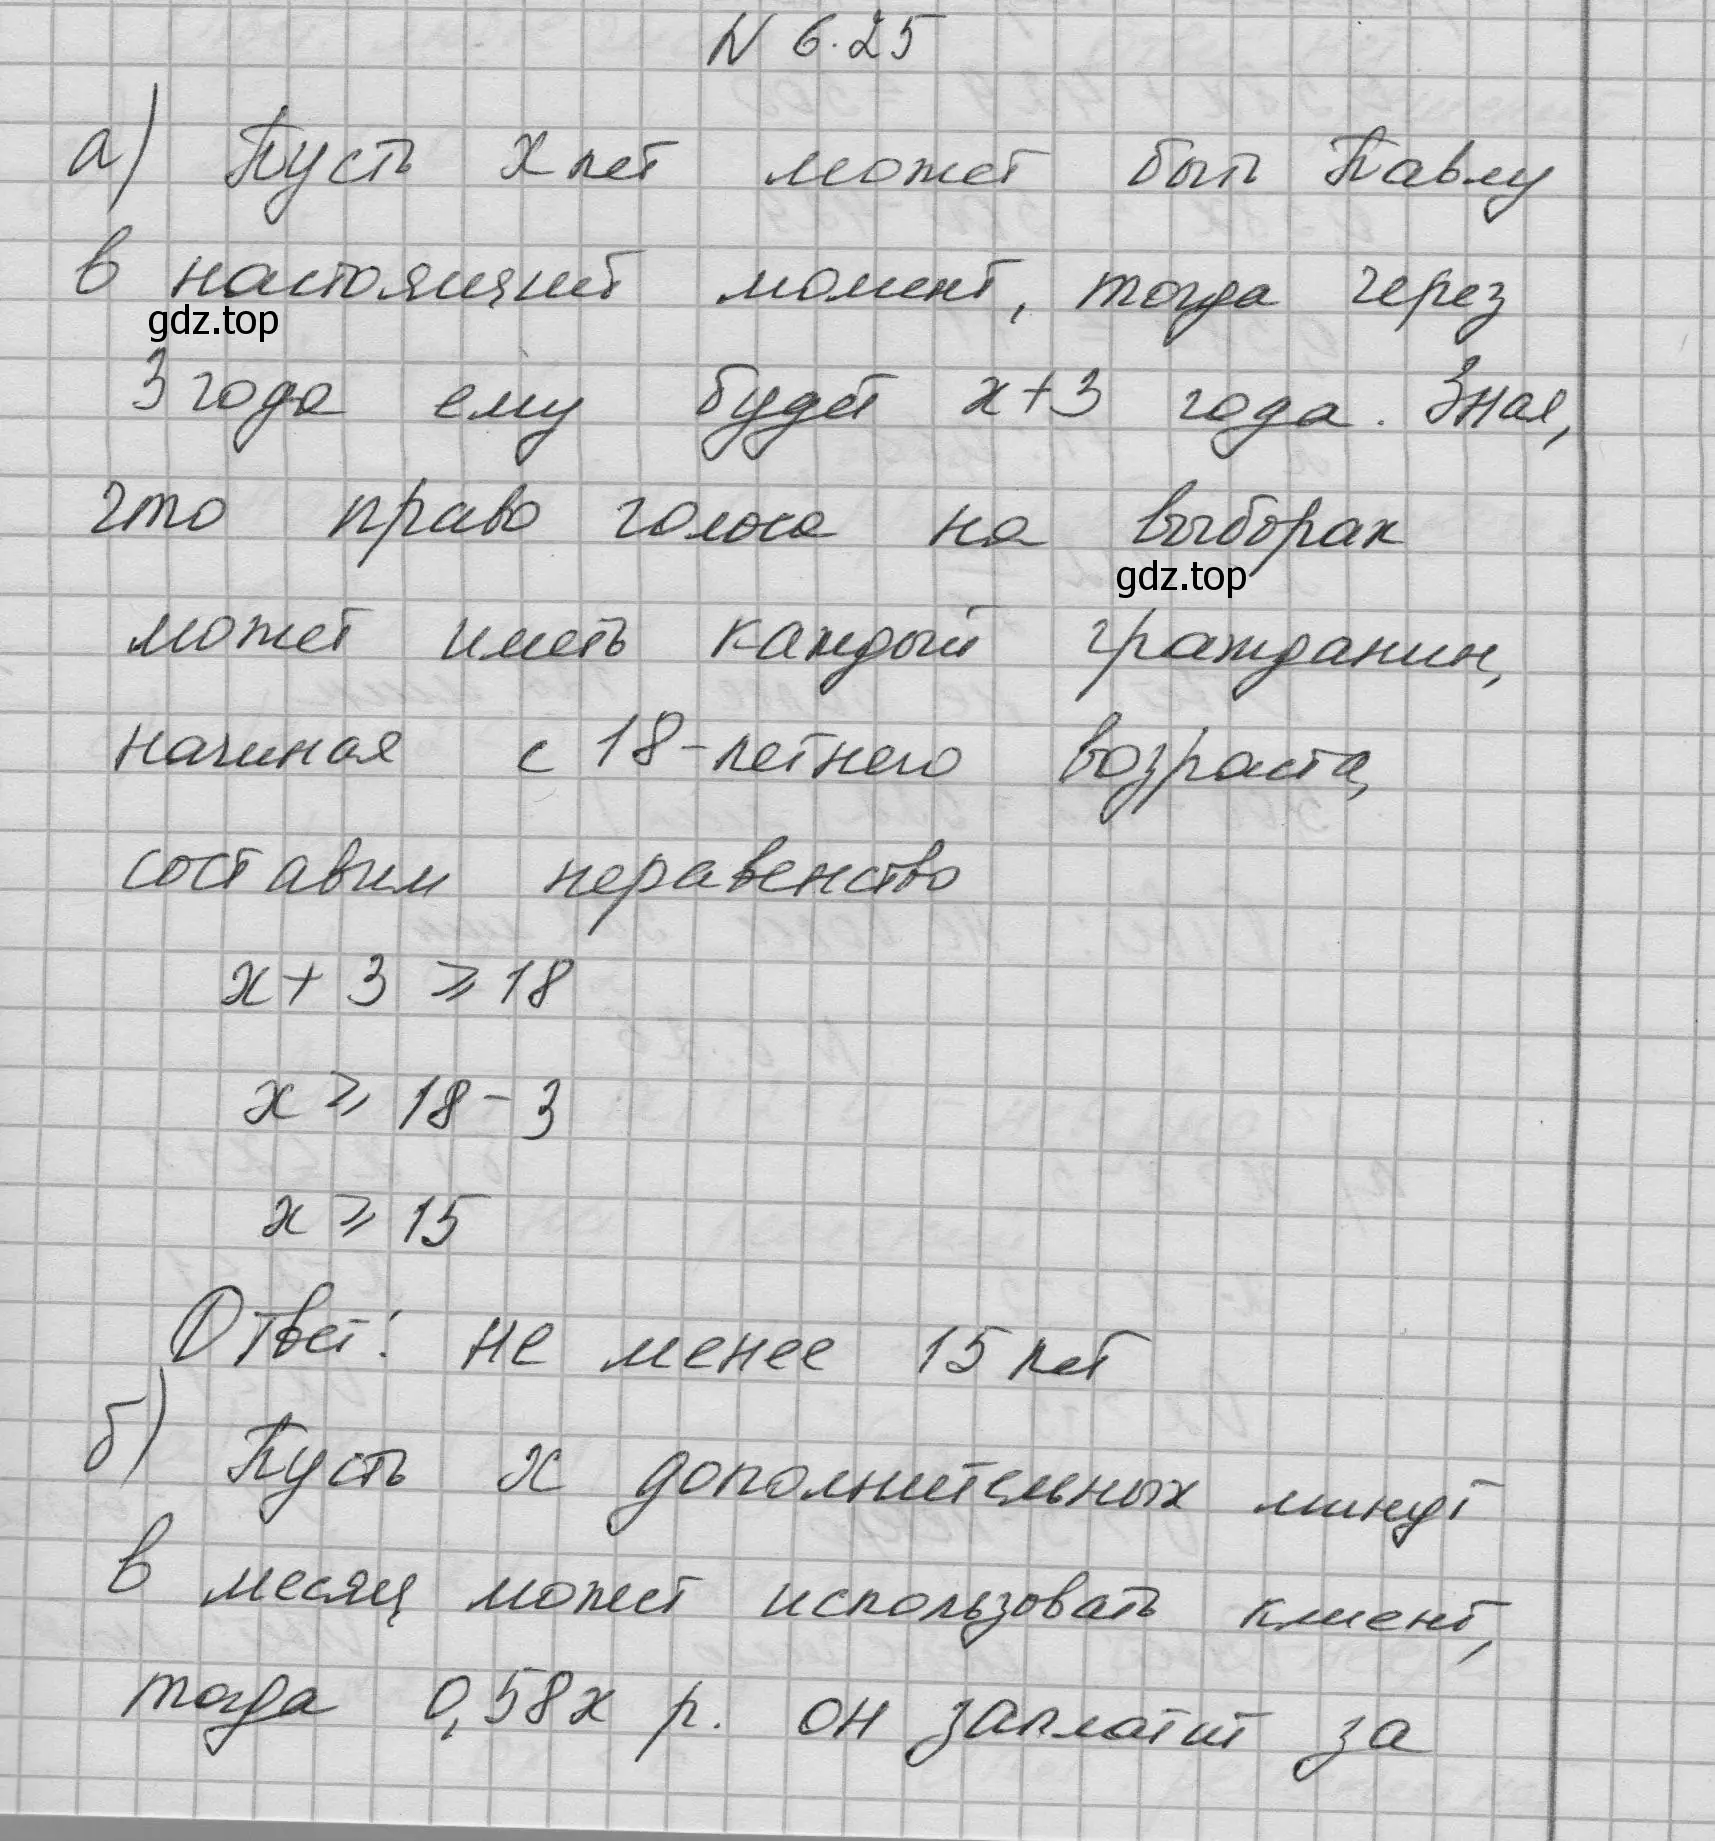 N 6.25
а) Пусть х лет может быть Павлу
в настоящий момент, тогда через
gdz.top
3 года ему будет х+3 года. Зная,
что право голоса на выборах
gdz.top
может иметь каждый гражданин,
начиная с 18-летнего возраста,
составим неравенство
х + 3 ⩾ 18
х ⩾ 18 - 3
х ⩾ 15
Ответ: не менее 15 лет
б) Пусть х дополнительных минут
в месяц может использовать клиент,
тогда 0,58х р. он заплатит за